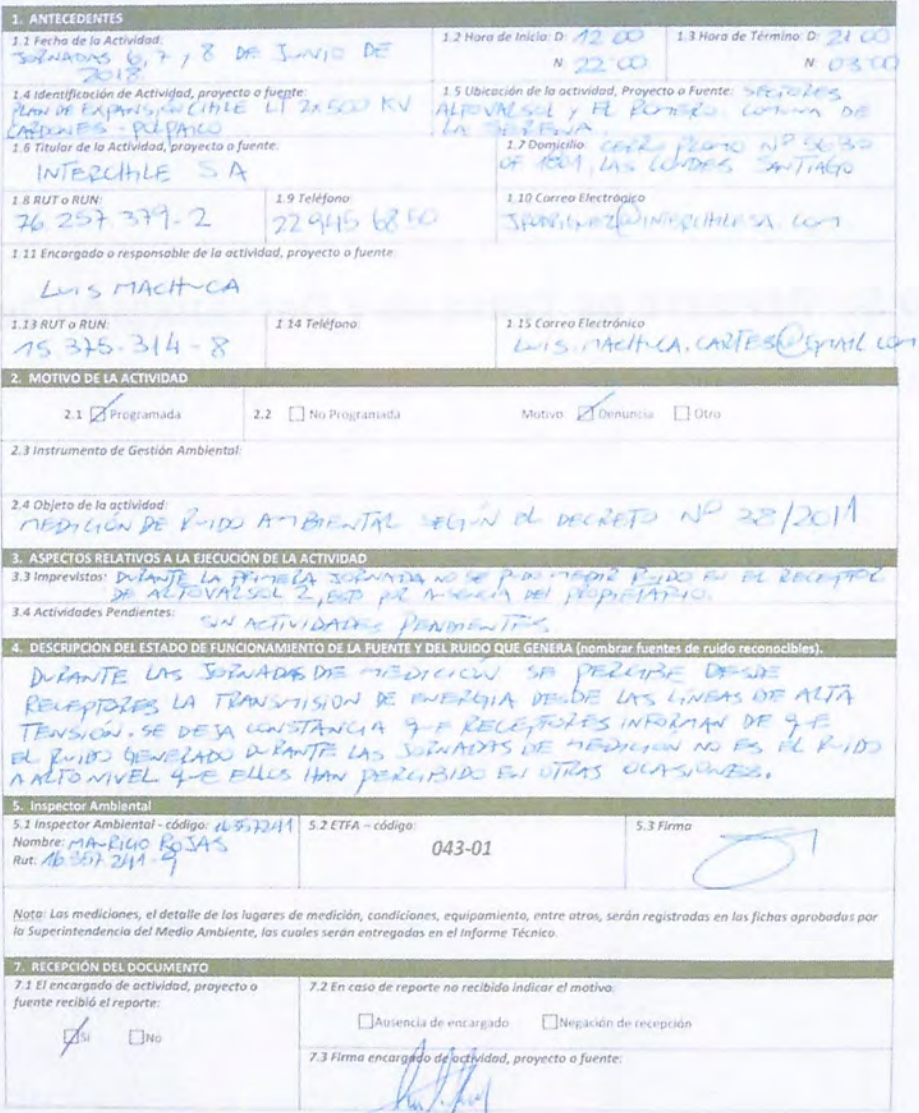 1. ANTECEDENTES
1.1 Fecha de la Actividad: 1.2 Hora de Inicio: D: 12:00 1.3 Hora de Término: D: 21:00
JORNADAS 6, 7 Y 8 DE JUNIO DE N: 22:00 N: 03:00
2018
1.4 Identificación de Actividad, proyecto o fuente: 1.5 Ubicación de la actividad, Proyecto o Fuente: SECTORES
PLAN DE EXPANSIÓN CHILE LT 2x500 KV ALTOVALSOL Y EL ROMERO. COMUNA DE
CARDONES - POLPAICO LA SERENA.
1.6 Titular de la Actividad, proyecto o fuente. 1.7 Domicilio CERRO PLOMO Nº 5630
INTERCHILE S A OF 1801, LAS CONDES SANTIAGO
1.8 RUT o RUN: 1.9 Teléfono: 1.10 Correo Electrónico
76.257.379-2 22 945 68 50 JRODRIGUEZ@INTERCHILESA.COM
1.11 Encargado o responsable de la actividad, proyecto o fuente:
LUIS MACHUCA
1.13 RUT o RUN: 1.14 Teléfono: 1.15 Correo Electrónico
15 375.314-8 LUIS.MACHUCA.CARTES@GMAIL.COM
2. MOTIVO DE LA ACTIVIDAD
2.1 Programada 2.2 No Programada Motivo Denuncia Otro
2.3 Instrumento de Gestión Ambiental:
2.4 Objeto de la actividad:
MEDICIÓN DE RUIDO AMBIENTAL SEGÚN EL DECRETO Nº 38/2011
3. ASPECTOS RELATIVOS A LA EJECUCIÓN DE LA ACTIVIDAD
3.3 Imprevistos: DURANTE LA PRIMERA JORNADA NO SE PUDO MEDIR RUIDO EN EL RECEPTOR
DE ALTOVALSOL 2, ESTO POR AUSENCIA DEL PROPIETARIO.
3.4 Actividades Pendientes: SIN ACTIVIDADES PENDIENTES
4. DESCRIPCIÓN DEL ESTADO DE FUNCIONAMIENTO DE LA FUENTE Y DEL RUIDO QUE GENERA (nombrar fuentes de ruido reconocibles).
DURANTE LAS JORNADAS DE MEDICIÓN SE PERCIBE DESDE
RECEPTORES LA TRANSMISION DE ENERGIA DESDE LAS LÍNEAS DE ALTA
TENSIÓN. SE DEJA CONSTANCIA QUE RECEPTORES INFORMAN DE QUE
EL RUIDO GENERADO DURANTE LAS JORNADAS DE MEDICION NO ES EL RUIDO
A ALTO NIVEL QUE ELLOS HAN PERCIBIDO EN OTRAS OCASIONES.
5. Inspector Ambiental
5.1 Inspector Ambiental - código: 16357241 5.2 ETFA – código: 5.3 Firma
Nombre: MAURICIO ROJAS 043-01
Rut: 16.357.241-9
Nota: Las mediciones, el detalle de los lugares de medición, condiciones, equipamiento, entre otros, serán registradas en las fichas aprobadas por
la Superintendencia del Medio Ambiente, las cuales serán entregadas en el Informe Técnico.
7. RECEPCIÓN DEL DOCUMENTO
7.1 El encargado de actividad, proyecto o 7.2 En caso de reporte no recibido indicar el motivo:
fuente recibió el reporte:
Si No Ausencia de encargado Negación de recepción
7.3 Firma encargado de actividad, proyecto o fuente: